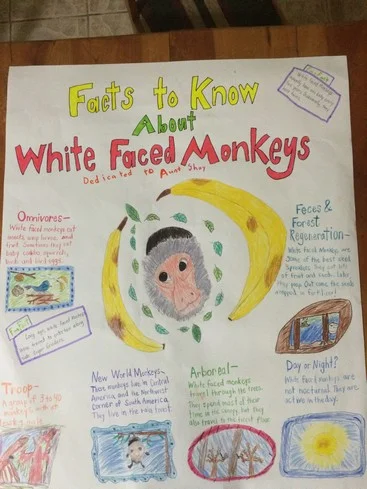 Facts to Know
About
White Faced Monkeys
Dedicated to Aunt Shay
Omnivores-
White faced monkeys eat
insects, very leaves, and
fruit. Sometimes they eat
baby
birds and bird eggs.
Feces &
Forest
Regeneration-
White Faced Monkeys are
some of the best seed
Spreaders. They eat lots
of fruit and seeds. Later
they poop. Out come the seeds
wrapped in fertilizer!
Troop-
A group of 3 to 40
monkeys with
New World Monkeys-
These monkeys live in Central
America and the Northwest
corner of South America.
They live in the rain forest.
Arboreal-
White faced monkeys
travel through the trees.
They spend most of their
time in the canopy, but they
also travel to the forest floor.
Day or Night?
White faced monkeys are
not nocturnal. They are
active in the day.